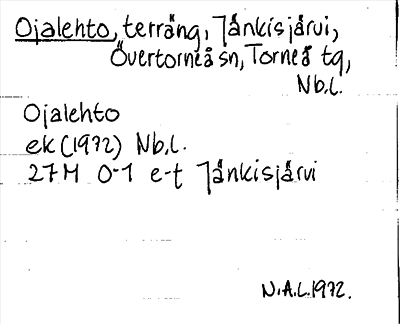 Ojalehto, terräng, Jänkisjärvi,
Övertorneå sn, Torneå tg,
Nb.l.
Ojalehto
ek (1972) Nb.l.
27M 0-1 e-t Jänkisjärvi
N.A.L. 1972.